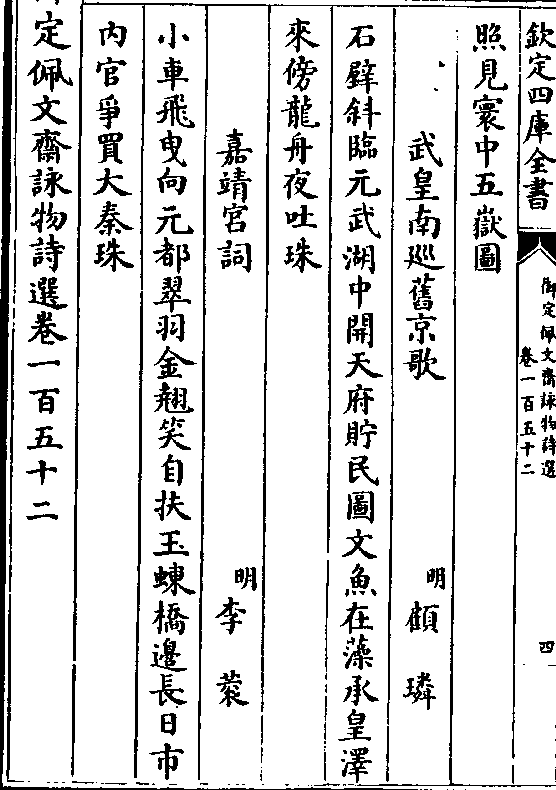 欽定四庫全書
御定佩文齋詠物詩選
卷一百五十二
四
照見寰中五嶽圖
武皇南廵舊京歌
明顧璘
石壁斜臨元武湖中開天府貯民圖文魚在藻承皇澤
來傍龍舟夜吐珠
嘉靖宮詞
明李蓘
小車飛曳向元都翠羽金翹笑自扶玉蝀橋邊長日市
内官爭買大秦珠
定佩文齋詠物詩選卷一百五十二